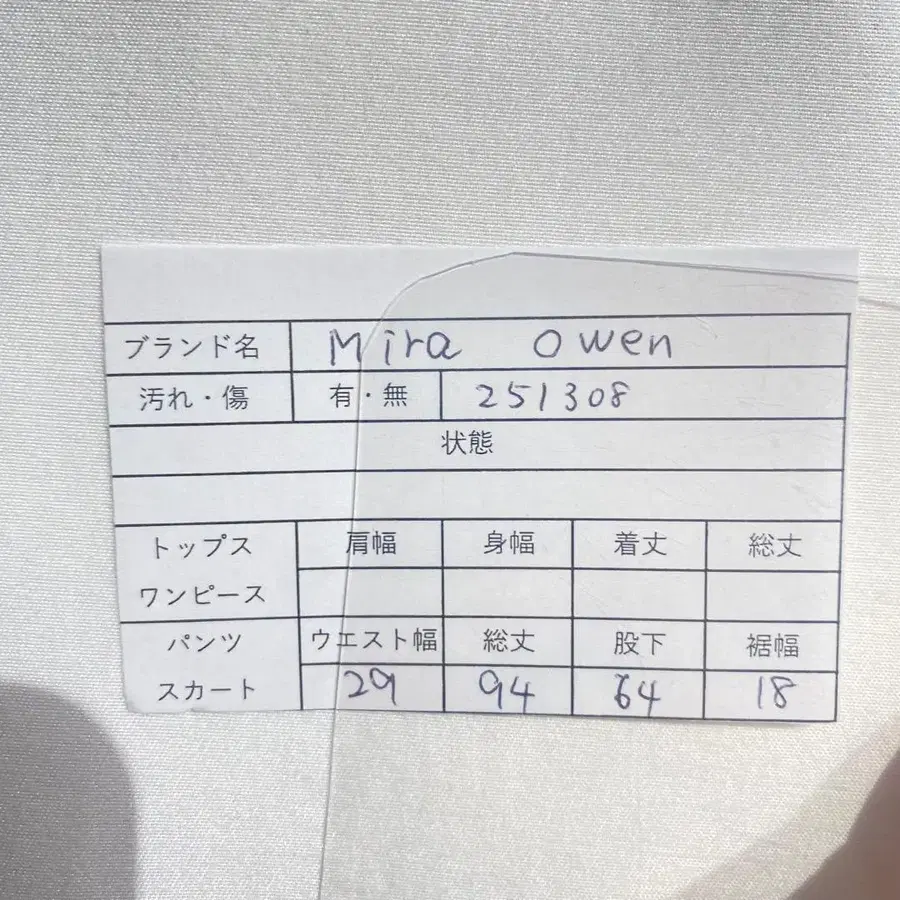 ブランド名 Mira Owen
汚れ・傷 有・無 251308
状態
トップス 肩幅 身幅 着丈 総丈
ワンピース
パンツ ウエスト幅 総丈 股下 裾幅
スカート 29 94 64 18